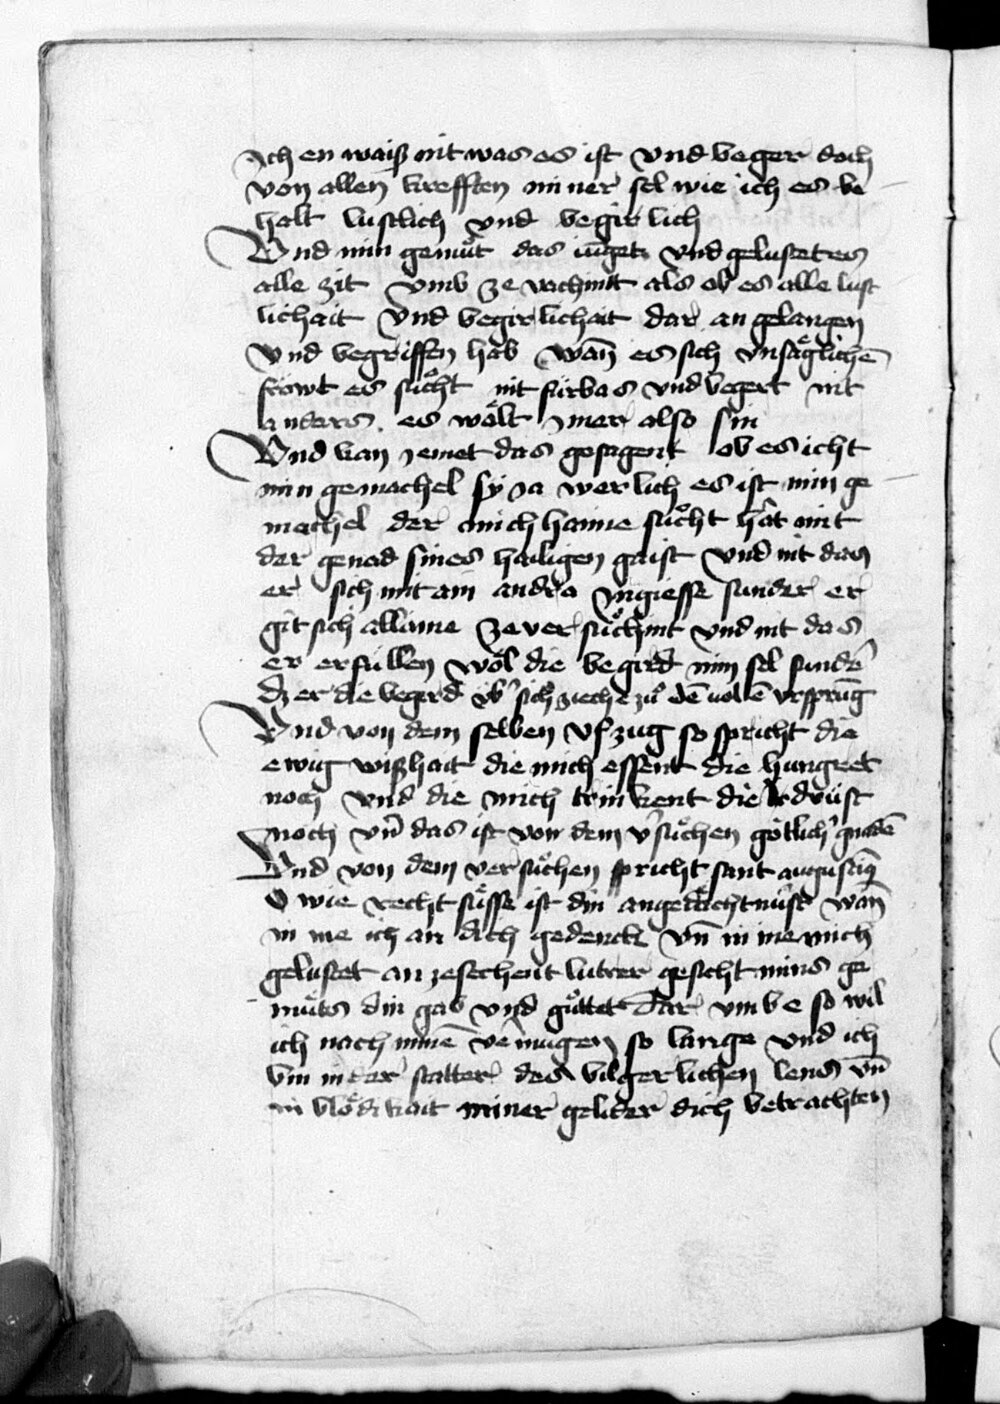 Ich en waiß nit was es ist vnd beger doch
von allen krefften miner sel wie ich es be
halt lustlich vnd begirlich
Vnd min gemuͤt das iunget vnd gelustet es
alle zit vmb ze vachint als ob es alle lust
lichait vnd begirlichait dar an gelangen
vnd begriffen hab wan̄ es sich vnsaͤglichē
froͤwt es suͦcht nit fúrbas vnd begert nit
anders. es woͤlt ymer also sin
Vnd kan yemet das gesagent ob es icht
min gemachel sy ia werlich es ist min ge
machel der mich haime suͦcht hat mit
der genad sines hailigen gaist vnd nit das
er sich mit ain andra ingiesse sunder er
git sich allaine ze versuͦchint vnd nit das
er erfúllen woͤl die begird min sel sundē
dz er die begerd vb̄ sich ziech zuͦ dē vollē vrsprūg
Vnd von dem selben vfzug so spricht die
ewig wißhait die mich essent die hungret
noch vnd die mich trinkent die durst
noch vn̄ das ist von dem v̄suͦchen goͤtlich̄ gnadē
Vnd von dem versuͦchen spricht sant augustin̄
O wie recht suͤsse ist din angedaͤchtnúst wan̄
in me ich an dich gedenck vn̄ in me mich
gelustet an zesechent lutrer gesicht mins ge
muͤts din gab vnd guͤttet dar vmbe so wil
ich nach minē v̄mugen so lange vnd ich
bin in der statter des bilgerlichen lens vn̄
in bloͤdikait miner gelider dich betrachten